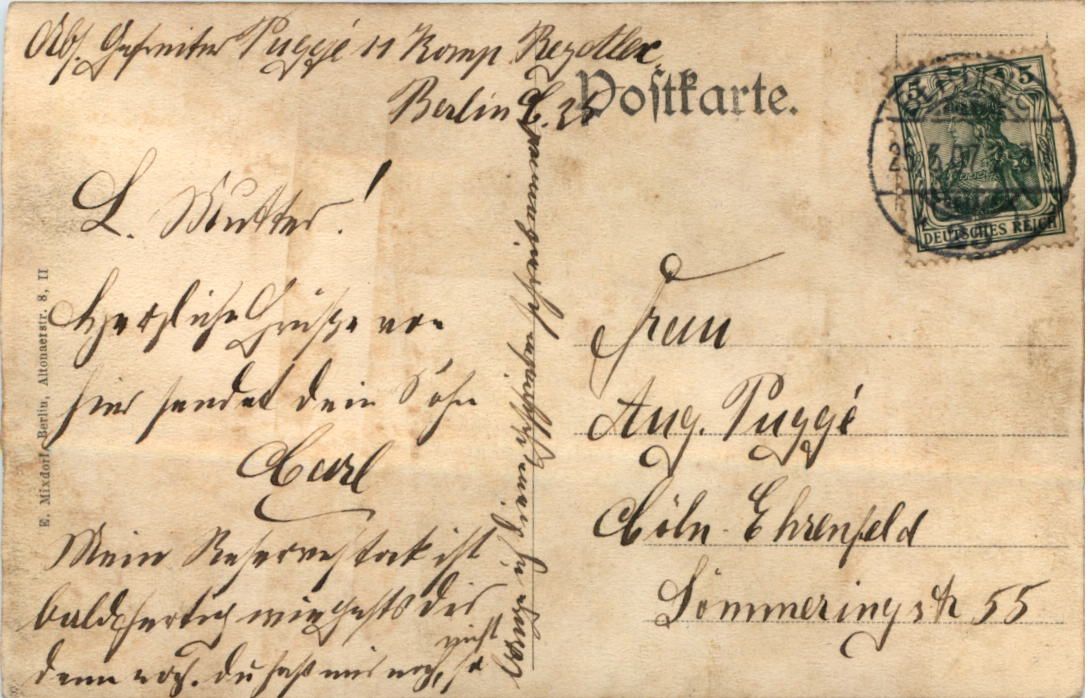 Abs. Gefreiter Puggé 11 Komp
Berlin C. 25
Postkarte.
5 5
DEUTSCHES REICH
L. Mutter!
Herzliche Grüße von
hier sendet dein Sohn
Carl
Mein Reservestock ist
bald fertig wie gehts dir
denn noch. du hast mir noch nicht, so
Frau
Aug. Puggé
Cöln-Ehrenfeld
Sömmeringstr 55
E. Mixdorf, Berlin, Altonaerstr. 8, II